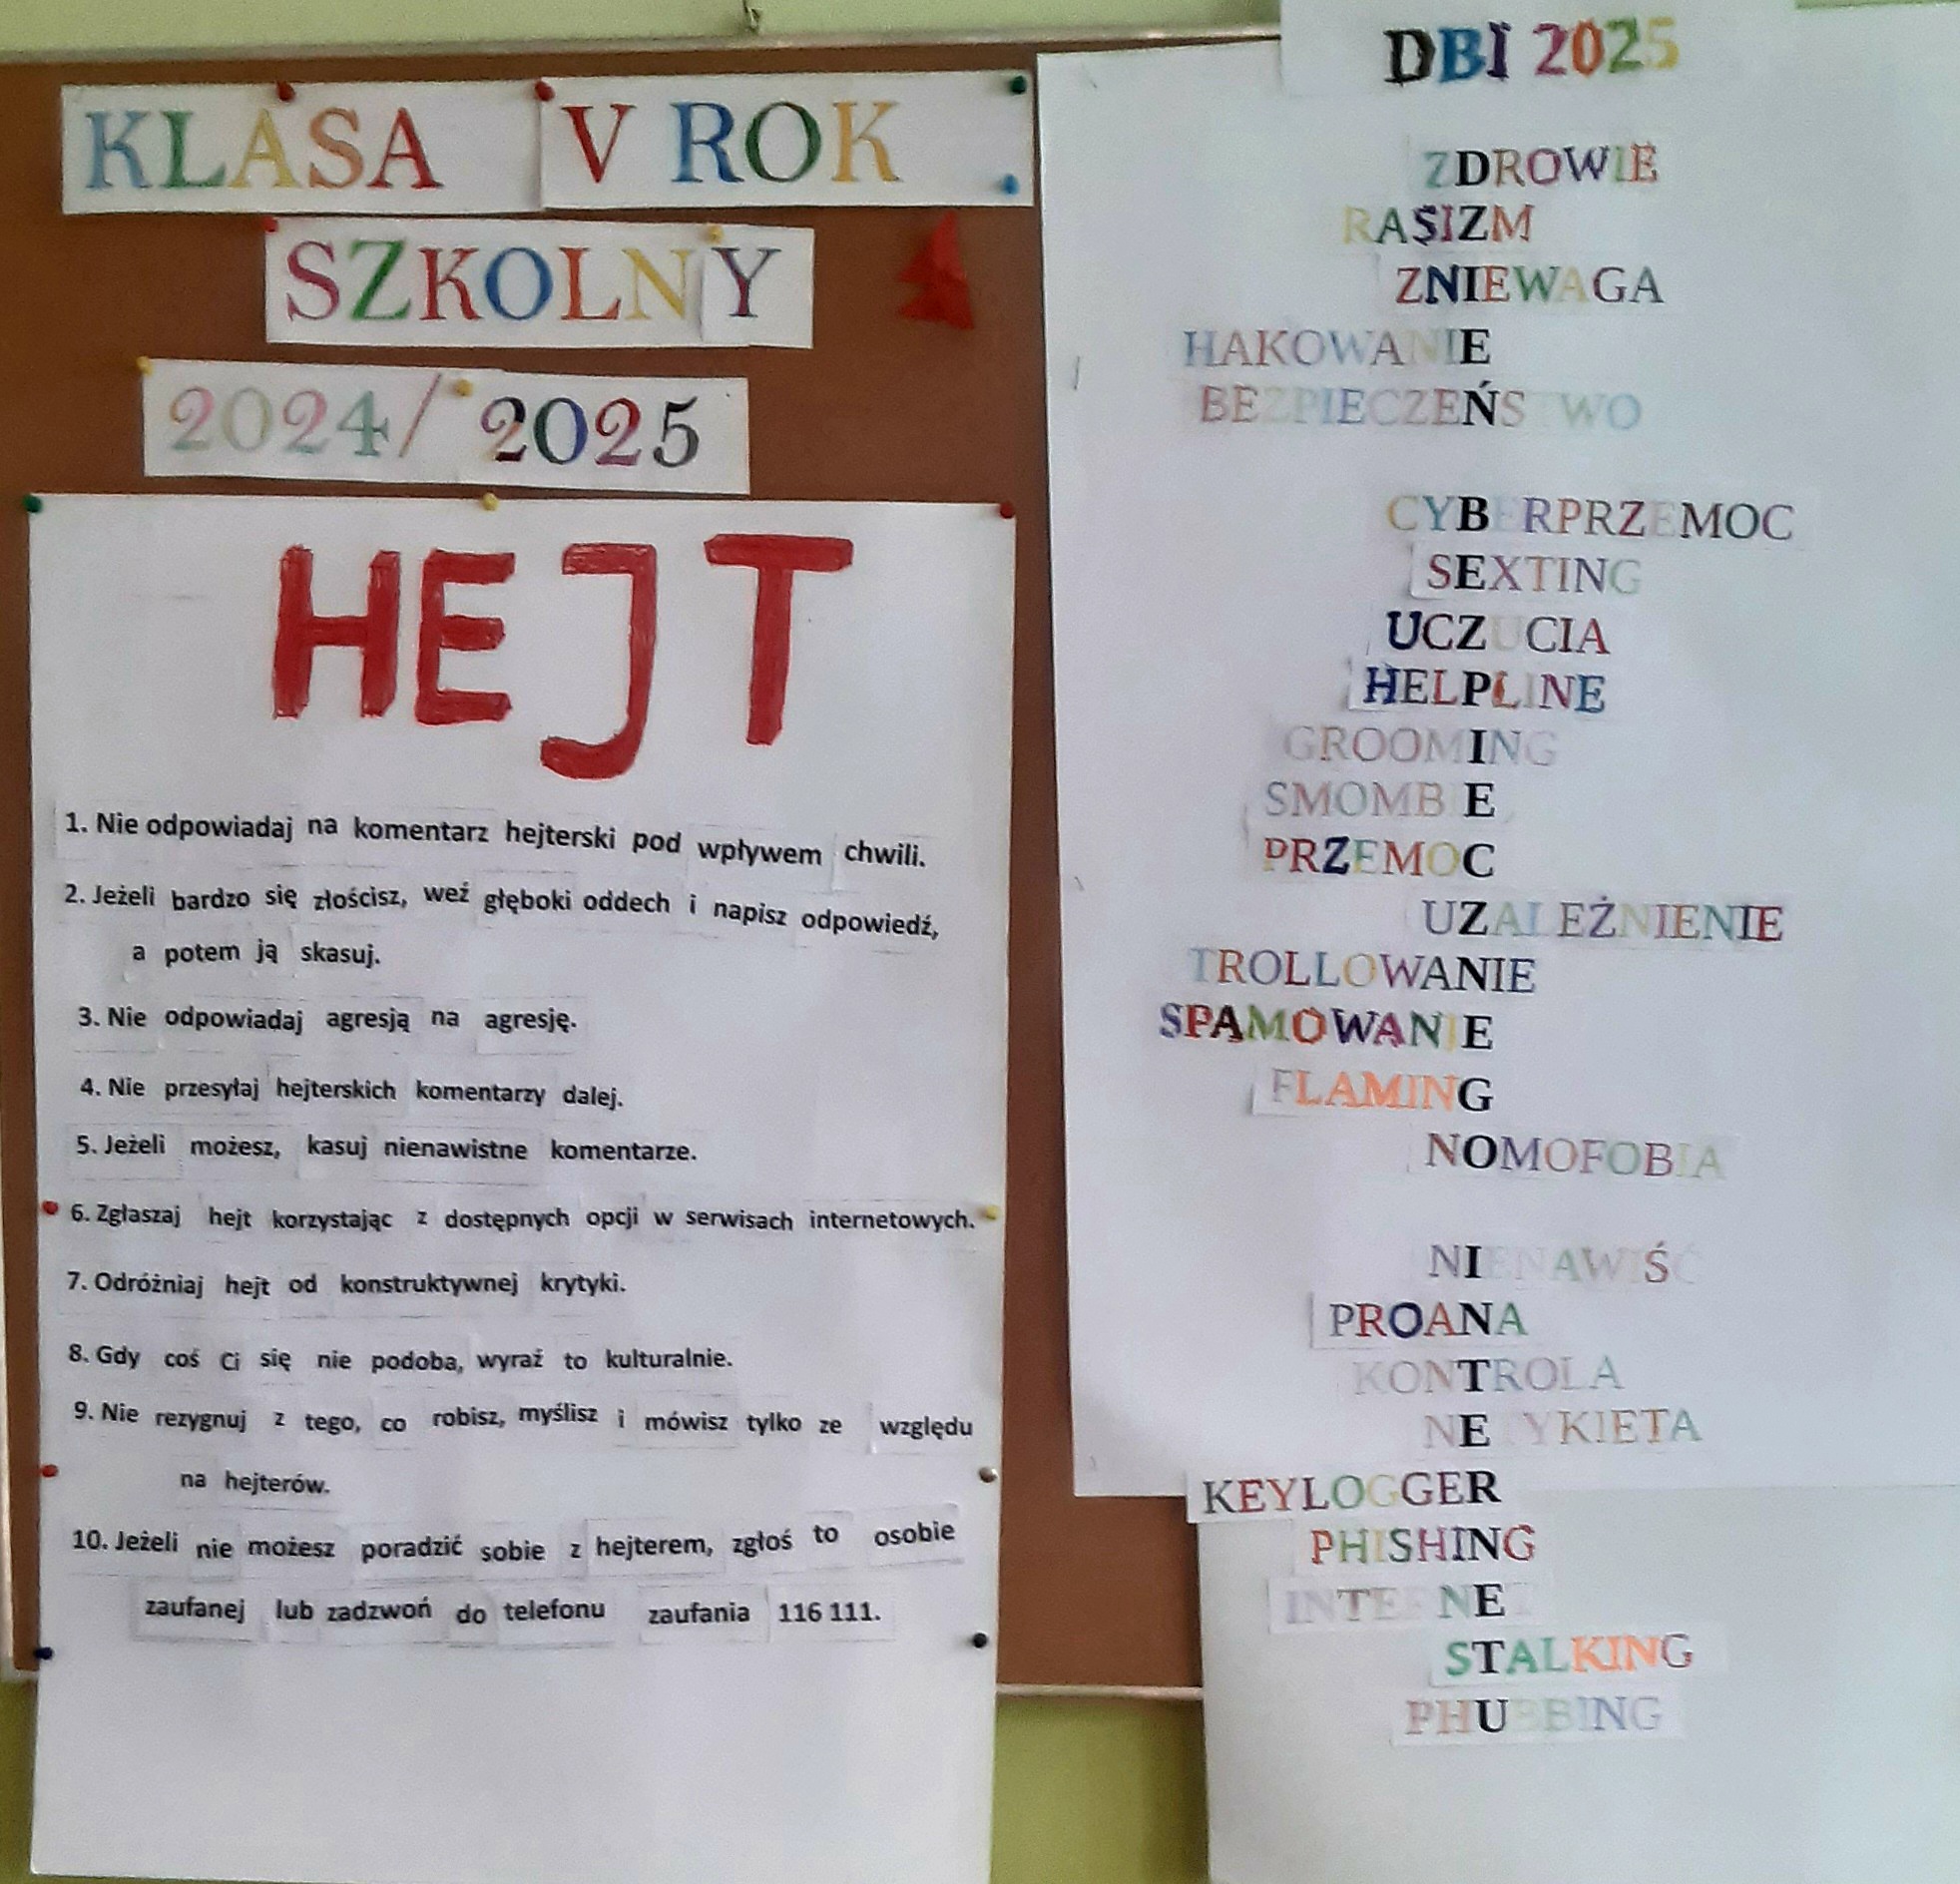 KLASA V ROK
SZKOLNY
2024/ 2025
HEJT
1. Nie odpowiadaj na komentarz hejterski pod wpływem chwili.
2. Jeżeli bardzo się złościsz, weź głęboki oddech i napisz odpowiedź,
a potem ją skasuj.
3. Nie odpowiadaj agresją na agresję.
4. Nie przesyłaj hejterskich komentarzy dalej.
5. Jeżeli możesz, kasuj nienawistne komentarze.
6. Zgłaszaj hejt korzystając z dostępnych opcji w serwisach internetowych.
7. Odróżniaj hejt od konstruktywnej krytyki.
8. Gdy coś Ci się nie podoba, wyraź to kulturalnie.
9. Nie rezygnuj z tego, co robisz, myślisz i mówisz tylko ze względu
na hejterów.
10. Jeżeli nie możesz poradzić sobie z hejterem, zgłoś to osobie
zaufanej lub zadzwoń do telefonu zaufania 116 111.
DBI 2025
ZDROWIE
RASIZM
ZNIEWAGA
HAKOWANIE
BEZPIECZEŃSTWO
CYBERPRZEMOC
SEXTING
UCZUCIA
HELPLINE
GROOMING
SMOMBIE
PRZEMOC
UZALEŻNIENIE
TROLLOWANIE
SPAMOWANIE
FLAMING
NOMOFOBIA
NIENAWIŚĆ
PROANA
KONTROLA
NETYKIETA
KEYLOGGER
PHISHING
INTERNET
STALKING
PHUBBING